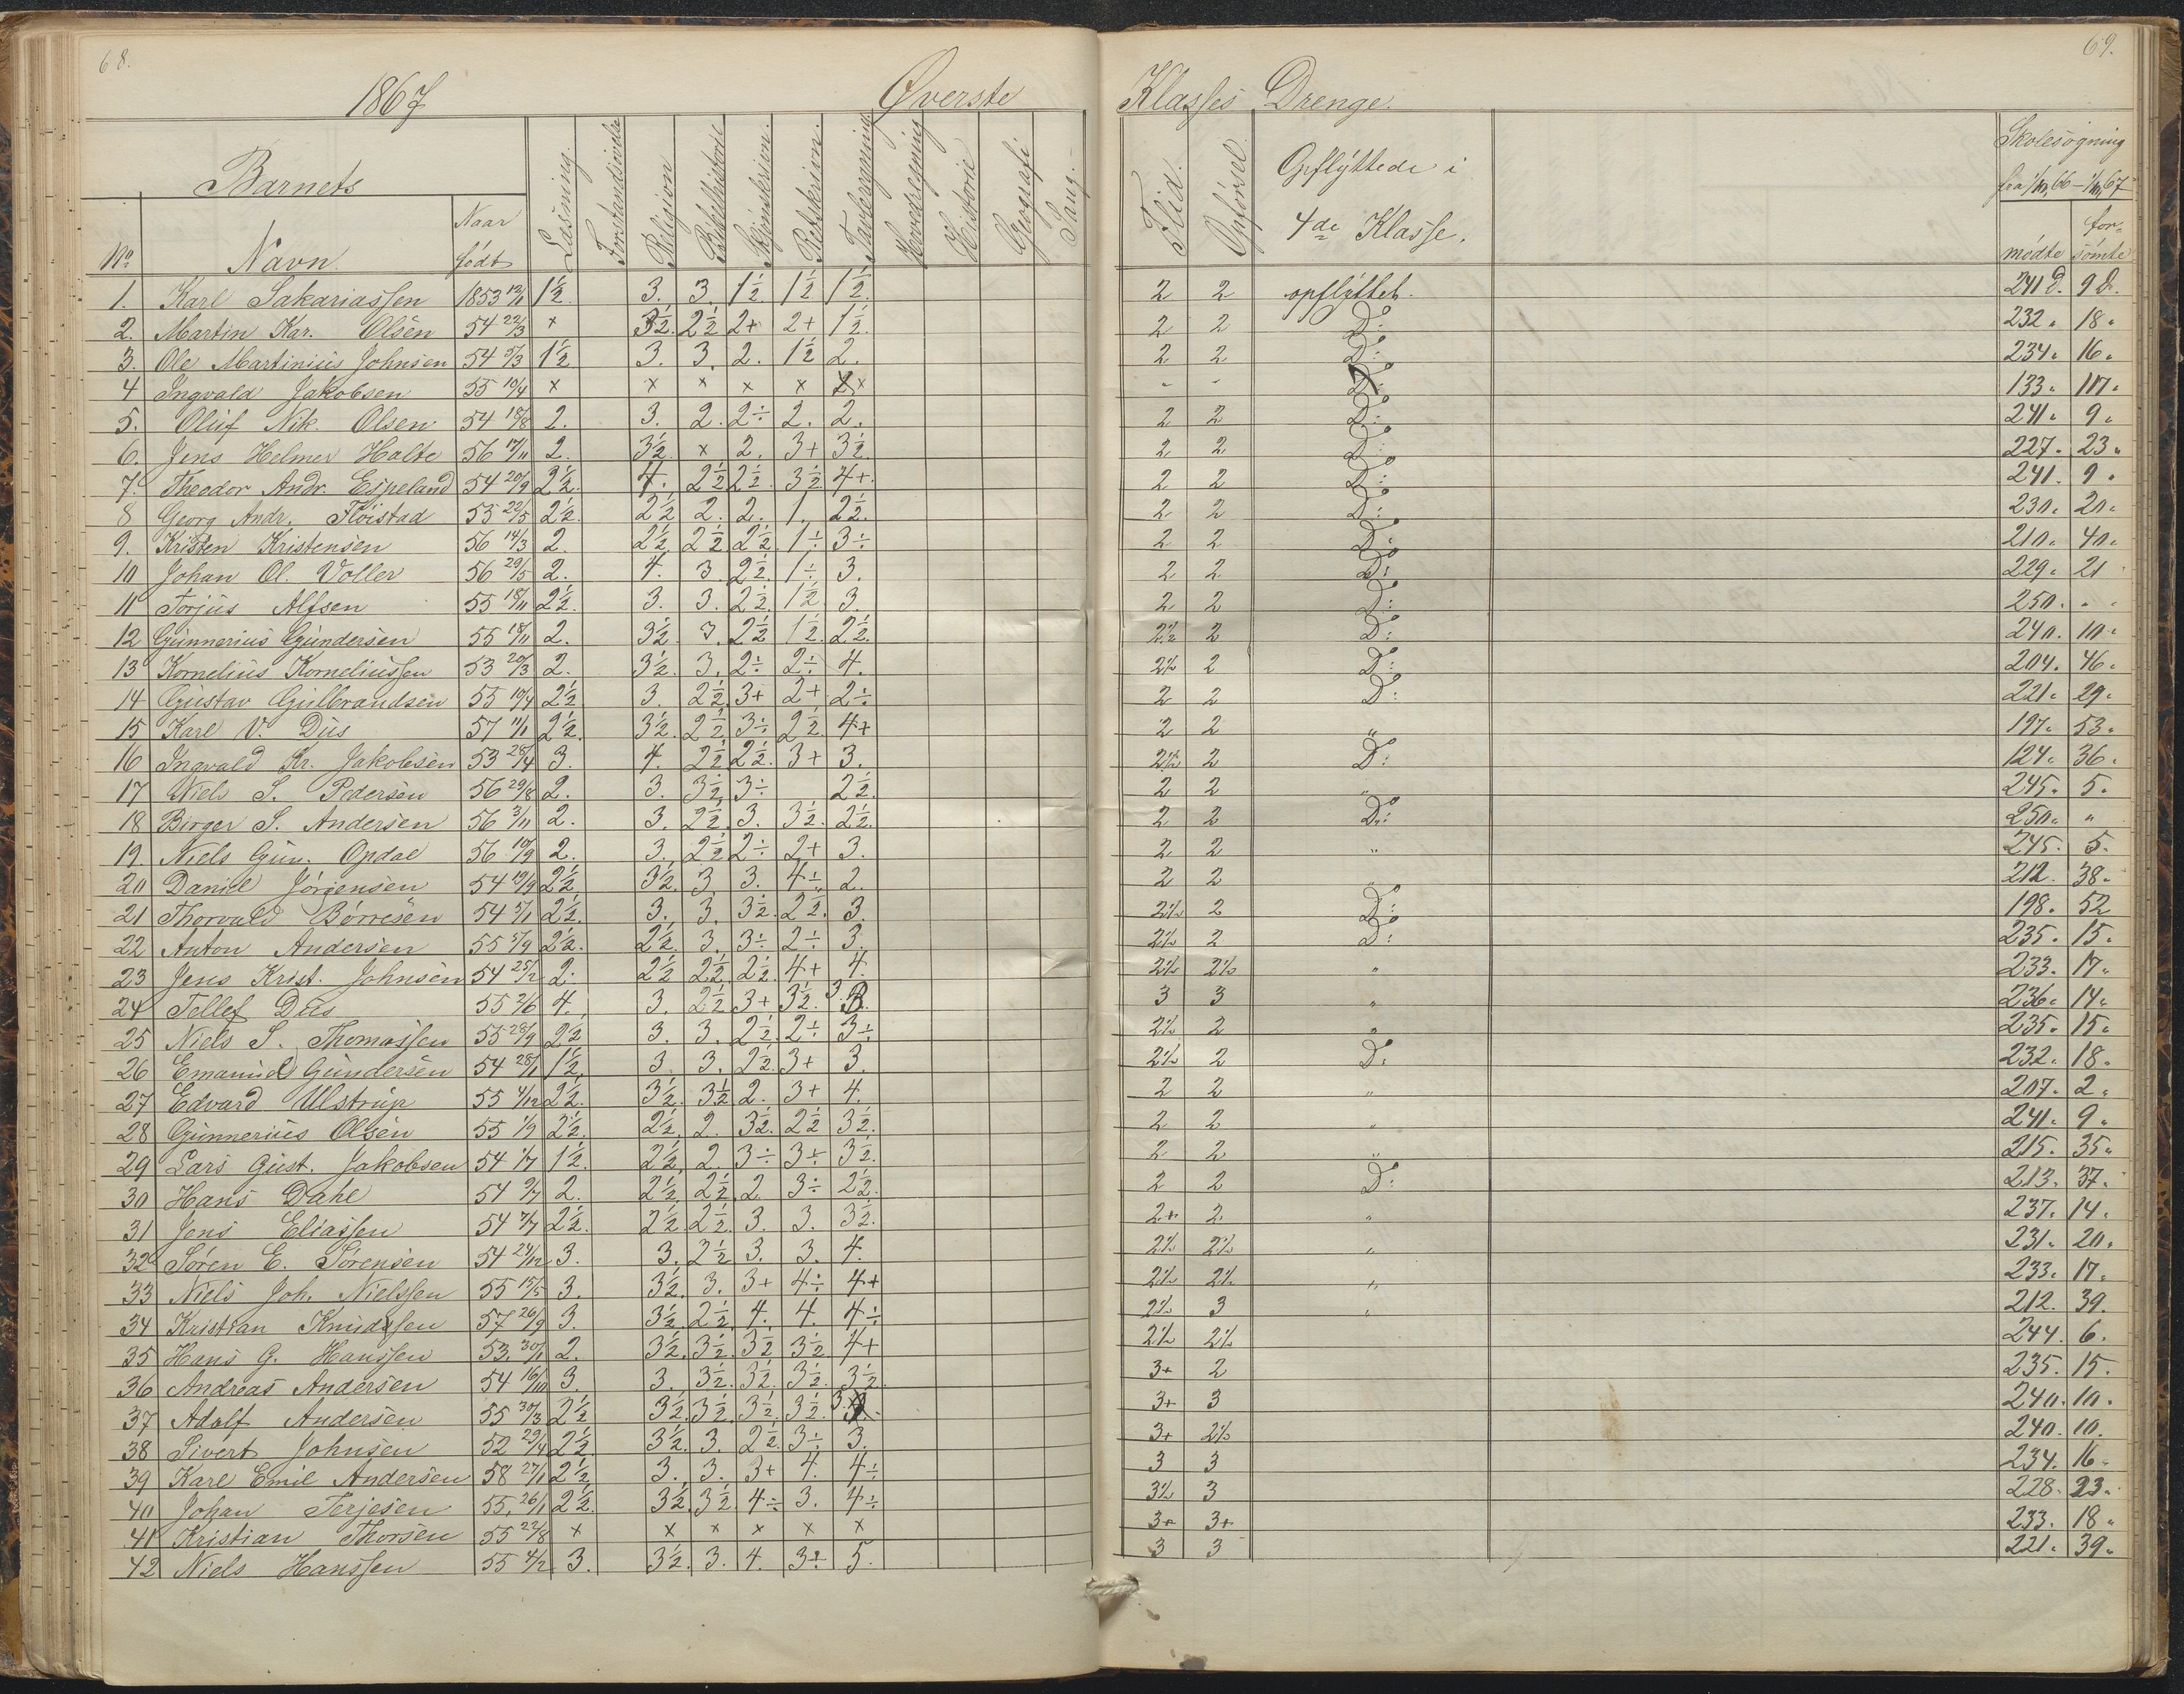 68.
1867
Øverste
Barnets
No
Navn
Naar født
Læsning.
Forstandsøvelse
Religion
Bibelhistorie
Skjønskrivn.
Retskrivn.
Tavleregning
Hovedregning
Historie
Geografi
Sang.
1. Karl Sakariassen 1853 13/11 1½ 3. 3. 1½ 1½ 1½.
2. Martin Kar. Olsen 54 22/3 × 3½. 2½ 2+ 2+ 1½.
3. Ole Martinius Johnsen 54 5/3 1½ 3. 3. 2. 1½ 2.
4 Ingvald Jakobsen 55 10/4 × × × × × ×
5. Oluf Nik. Olsen 54 18/8 2. 3. 2. 2÷ 2. 2.
6. Jens Helmer Holte 56 17/11 2. 3½. × 2. 3+ 3½.
7. Theodor Andr. Espeland 54 20/9 2½. 4. 2½ 2½. 3½ 4+.
8 Georg Andr. Fløistad 55 29/5 2½. 2½ 2. 2. 1. 2½.
9. Kristen Kristensen 56 14/3 2. 2½. 2½ 2½. 1÷ 3÷
10 Johan Ol. Voller 56 29/5 2. 4. 3. 2½. 1÷ 3.
11 Torjus Alfsen 55 18/11 2½. 3. 3. 2½. 1½ 3.
12 Gunnerius Gundersen 55 18/11 2. 3½. 3. 2½ 1½. 2½.
13 Kornelius Korneliussen 53 20/3 2. 3½. 3. 2÷ 2÷ 4.
14 Gustav Gulbrandsen 55 10/4 2½ 3. 2½ 3+ 2+ 2÷
15 Karl V. Dus 57 11/1 2½. 3½. 2½ 3÷ 2½ 4+
16 Ingvald Kr. Jakobsen 53 28/4 3. 4. 2½ 2½. 3+ 3.
17 Niels S. Pedersen 56 29/8 2. 3. 3½ 3÷ 2½.
18 Birger S. Andersen 56 3/11 2. 3. 2½. 3. 3½. 2½.
19. Niels Gun. Opdal 56 10/9 2. 3. 2½ 2÷ 2+ 3.
20 Daniel Jörgensen 54 19/9 2½ 3½. 3. 3. 4÷ 2.
21 Thorvald Børresen 54 5/1 2½. 3. 3. 3½. 2½. 3.
22 Anton Andersen 55 5/9 2½. 2½. 3. 3÷ 2÷ 3.
23 Jens Krist. Johnsen 54 25/12 2. 2½ 2½ 2½. 4+ 4.
24 Tellef Dus 55 2/6 4. 3. 2½ 3+ 3½. 3.
25 Niels S. Thomassen 55 28/9 2½ 3. 3. 2½. 2÷ 3÷
26 Emanuel Gundersen 54 28/1 1½. 3. 3. 2½. 3+ 3.
27 Edvard Ulstrup 55 4/12 2½. 3½. 3½. 2. 3+ 4.
28 Gunnerius Olsen 55 1/9 2½. 2½. 2. 3½. 2½ 3½.
29 Lars Gust. Jakobsen 54 1/7 1½. 2½. 2. 3÷ 3÷ 3½.
30 Hans Dahl 54 9/7 2. 2½. 2½. 2. 3÷ 2½.
31 Jens Eliassen 54 7/7 2½. 2½. 2½. 3. 3. 3½.
32 Søren E. Sørensen 54 24/12 3. 3. 2½ 3. 3. 4.
33 Niels Joh. Nielssen 55 15/5 3. 3½. 3. 3+ 4÷ 4+
34 Kristian Knudssen 57 26/9 3. 3½. 2½. 4. 4. 4÷
35 Hans G. Hanssen 53. 30/1 2. 3½. 3½. 3½ 3½. 4+
36 Andreas Andersen 54 16/10 3. 3. 3½. 3½. 3½. 3½.
37 Adolf Andersen 55 30/3 2½ 3½. 3½. 3½. 3½. 3.
38 Sivert Johnsen 52 29/4 2½. 3½. 3. 2½. 3÷ 3.
39 Karl Emil Andersen 58 27/1 2½ 3. 3. 3+ 4. 4÷
40 Johan Terjesen 55. 26/1 2½. 3½. 3½. 4÷ 3. 4÷
41 Kristian Thorsen 55 22/8 × × × × × ×
42 Niels Hanssen 55 4/2 3. 3½. 3. 4. 3÷ 5.
69.
Klasses Drenge.
Flid.
Opförsel.
Opflyttede i
4de Klasse.
Skolesøgning
fra 1/10 66 – 1/10 67
mødte
forsömte
2 2 opflyttet. 241 D. 9 D.
2 2 Do: 232 " 18 "
2 2 Do: 234 " 16 "
- - Do: 133 " 117 "
2 2 Do: 241 " 9 "
2 2 Do: 227 " 23 "
2 2 Do: 241. 9 "
2 2 Do: 230 " 20 "
2 2 Do: 210 " 40 "
2 2 Do: 229 " 21
2 2 Do: 250 " " "
2½ 2 Do: 240. 10 "
2½ 2 Do: 204. 46 "
2 2 Do: 221 " 29 "
2 2 " 197 " 53 "
2½ 2 Do: 124 " 36 "
2 2 " 245 " 5 "
2 2 Do: 250 " "
2 2 " 245. 5 "
2 2 " 212. 38 "
2½ 2 Do: 198. 52
2½ 2 Do: 235. 15 "
2½ 2½ " 233. 17 "
3 3 " 236 " 14 "
2½ 2 " 235 " 15 "
2½ 2 Do: 232. 18 "
2 2 " 207. 2 "
2 2 " 241. 9 "
2 2 " 215. 35 "
2 2 Do: 213. 37 "
2+ 2 " 237. 14 "
2½ 2½ " 231. 20 "
2½ 2½ " 233. 17 "
2½ 3 " 212. 39.
2½ 2½ 244. 6.
3+ 2 235. 15.
3+ 3 240. 10.
3+ 2½ 240. 10.
3 3 234. 16 "
3½ 3 228. 23 "
3+ 3+ 233. 18 "
3 3 221 " 39 "